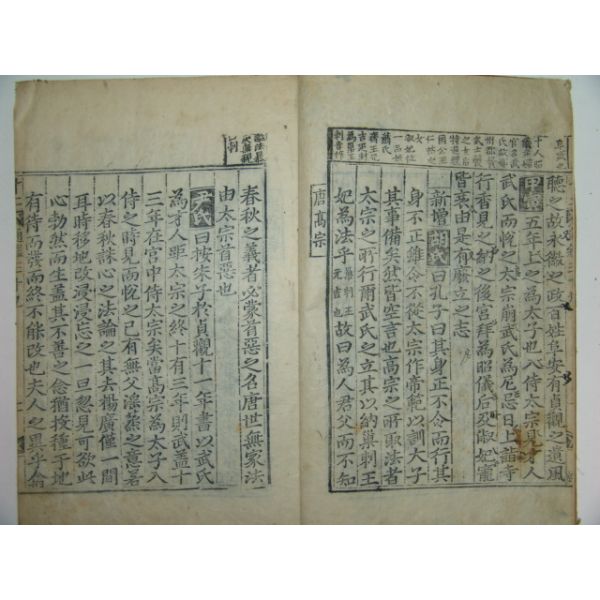 聽之故永徽之政百姓阜安有貞觀之遺風
五年上之為太子也入侍太宗見才人
武氏而悅之太宗崩武氏為尼忌日上詣寺
行香見之納之後宮拜為昭儀后及淑妃寵
皆衰由是有廢立之志
新增 胡氏曰孔子曰其身正不令而行其
身不正雖令不從太宗作帝範以訓太子
其事備矣然皆空言也高宗之所取法者
太宗之所行爾武氏之立其以納巢剌王
妃為法乎 故曰為人君父而不知
唐高宗
春秋之義者必蒙首惡之名唐世無家法
由太宗首惡也
尹氏曰按朱子於貞觀十一年書以武氏
為才人距太宗之終十有三年則武蓋十
三年在宮中侍太宗矣當高宗為太子入
侍之時見而悅之已有無父淫烝之意若
以春秋誅心之法論之其去楊廣僅一間
耳時移地改浸浸忘之一旦忽見可欲此
心勃然而生蓋其不善之念猶投種于地
有待而發而終不能改也夫人之異乎禽